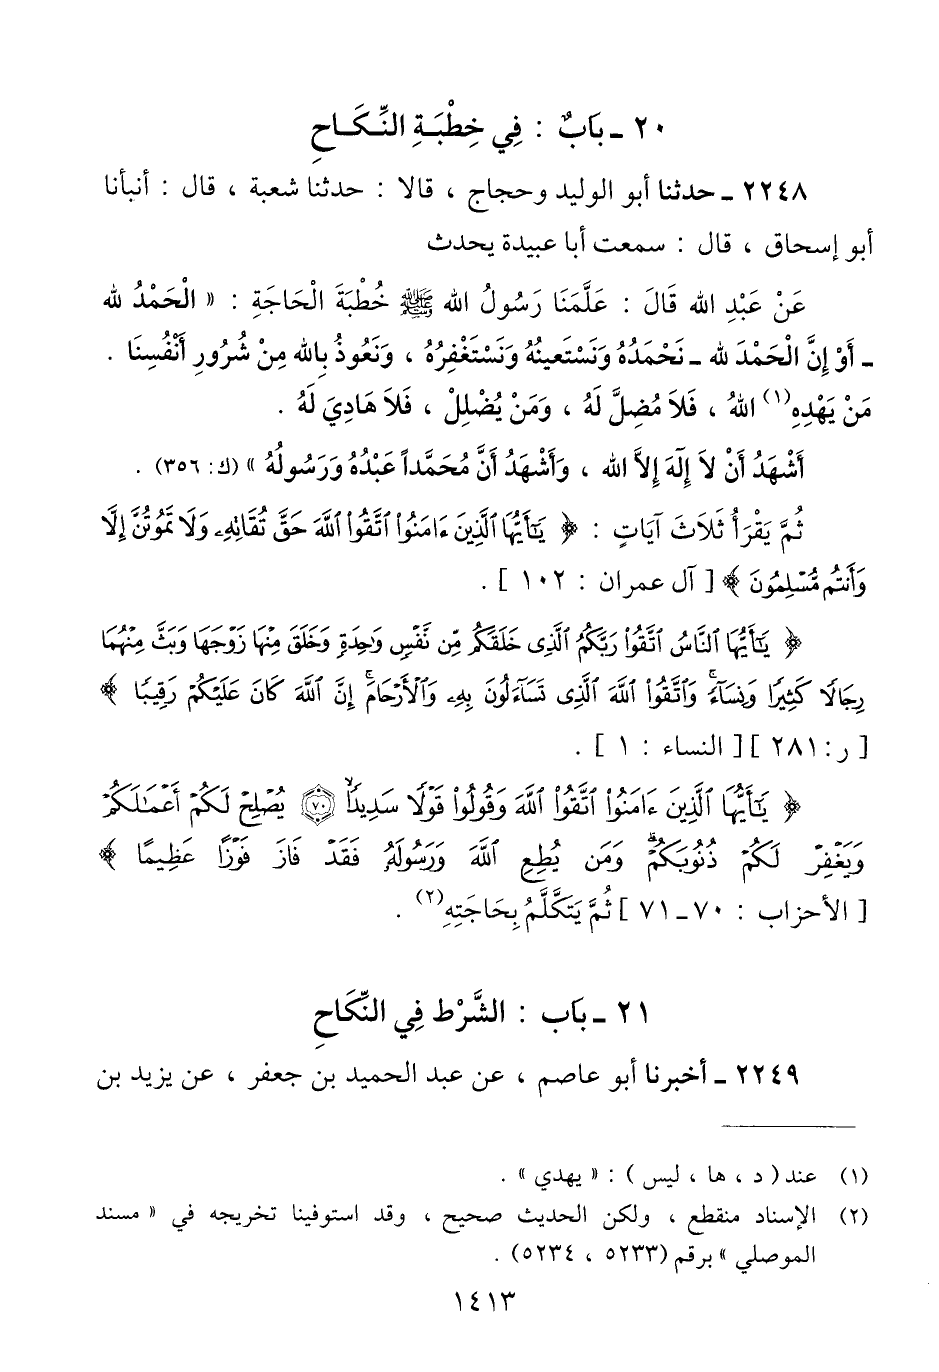 ٢٠ ـ بَابٌ : فِي خِطْبَةِ النِّكَاحِ
٢٢٤٨ ـ حدثنا أبو الوليد وحجاج ، قالا : حدثنا شعبة ، قال : أنبأنا
أبو إسحاق ، قال : سمعت أبا عبيدة يحدث
عَنْ عَبْدِ الله قَالَ : عَلَّمَنَا رَسُولُ الله ﷺ خُطْبَةَ الْحَاجَةِ : « الْحَمْدُ لله
ـ أَوْ إِنَّ الْحَمْدَ لله ـ نَحْمَدُهُ وَنَسْتَعينُهُ وَنَسْتَغْفِرُهُ ، وَنَعُوذُ بِالله مِنْ شُرُورِ أَنْفُسِنَا .
مَنْ يَهْدِهِ(١) اللهُ ، فَلاَ مُضِلَّ لَهُ ، وَمَنْ يُضْلِلْ ، فَلاَ هَادِيَ لَهُ .
أَشْهَدُ أَنْ لاَ إِلَهَ إِلاَّ الله ، وَأَشْهَدُ أَنَّ مُحَمَّداً عَبْدُهُ وَرَسُولُهُ » (ك: ٣٥٦) .
ثُمَّ يَقْرَأُ ثَلاَثَ آيَاتٍ : ﴿ يَٰٓأَيُّهَا ٱلَّذِينَ ءَامَنُوا۟ ٱتَّقُوا۟ ٱللَّهَ حَقَّ تُقَائِهِۦ وَلَا تَمُوتُنَّ إِلَّا
وَأَنتُم مُّسْلِمُونَ ﴾ [ آل عمران : ١٠٢ ] .
﴿ يَٰٓأَيُّهَا ٱلنَّاسُ ٱتَّقُوا۟ رَبَّكُمُ ٱلَّذِى خَلَقَكُم مِّن نَّفْسٍ وَٰحِدَةٍ وَخَلَقَ مِنْهَا زَوْجَهَا وَبَثَّ مِنْهُمَا
رِجَالًا كَثِيرًا وَنِسَآءً ۚ وَٱتَّقُوا۟ ٱللَّهَ ٱلَّذِى تَسَآءَلُونَ بِهِۦ وَٱلْأَرْحَامَ ۚ إِنَّ ٱللَّهَ كَانَ عَلَيْكُمْ رَقِيبًا ﴾
[ ر: ٢٨١ ] [ النساء : ١ ] .
﴿ يَٰٓأَيُّهَا ٱلَّذِينَ ءَامَنُوا۟ ٱتَّقُوا۟ ٱللَّهَ وَقُولُوا۟ قَوْلًا سَدِيدًا ۙ ۝٧٠ يُصْلِحْ لَكُمْ أَعْمَٰلَكُمْ
وَيَغْفِرْ لَكُمْ ذُنُوبَكُمْ ۗ وَمَن يُطِعِ ٱللَّهَ وَرَسُولَهُۥ فَقَدْ فَازَ فَوْزًا عَظِيمًا ﴾
[ الأحزاب : ٧٠ ـ ٧١ ] ثُمَّ يَتَكَلَّمُ بِحَاجَتِهِ(٢) .
٢١ ـ بَاب : الشَّرْط فِي النِّكَاحِ
٢٢٤٩ ـ أخبرنا أبو عاصم ، عن عبد الحميد بن جعفر ، عن يزيد بن
(١) عند ( د ، ها ، ليس ) : « يهدي » .
(٢) الإسناد منقطع ، ولكن الحديث صحيح ، وقد استوفينا تخريجه في « مسند
الموصلي » برقم (٥٢٣٣ ، ٥٢٣٤) .
١٤١٣